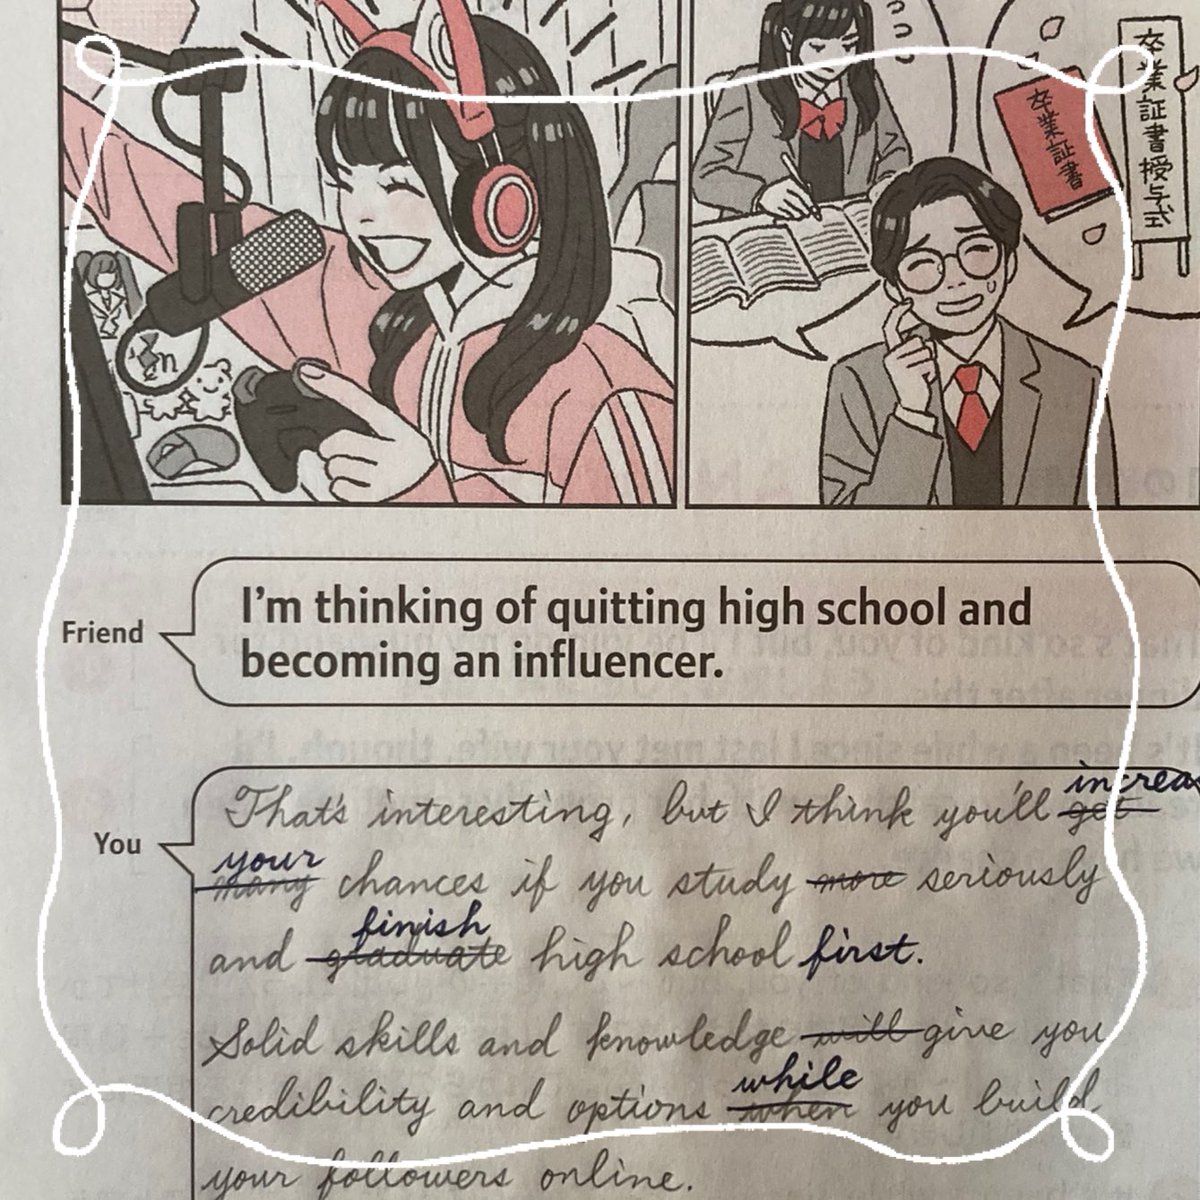 卒業証書
卒業証書授与式
Friend
I'm thinking of quitting high school and
becoming an influencer.
You
That's interesting, but I think you'll get increas
many your chances if you study more seriously
and graduate finish high school first.
Solid skills and knowledge will give you
credibility and options when while you build
your followers online.